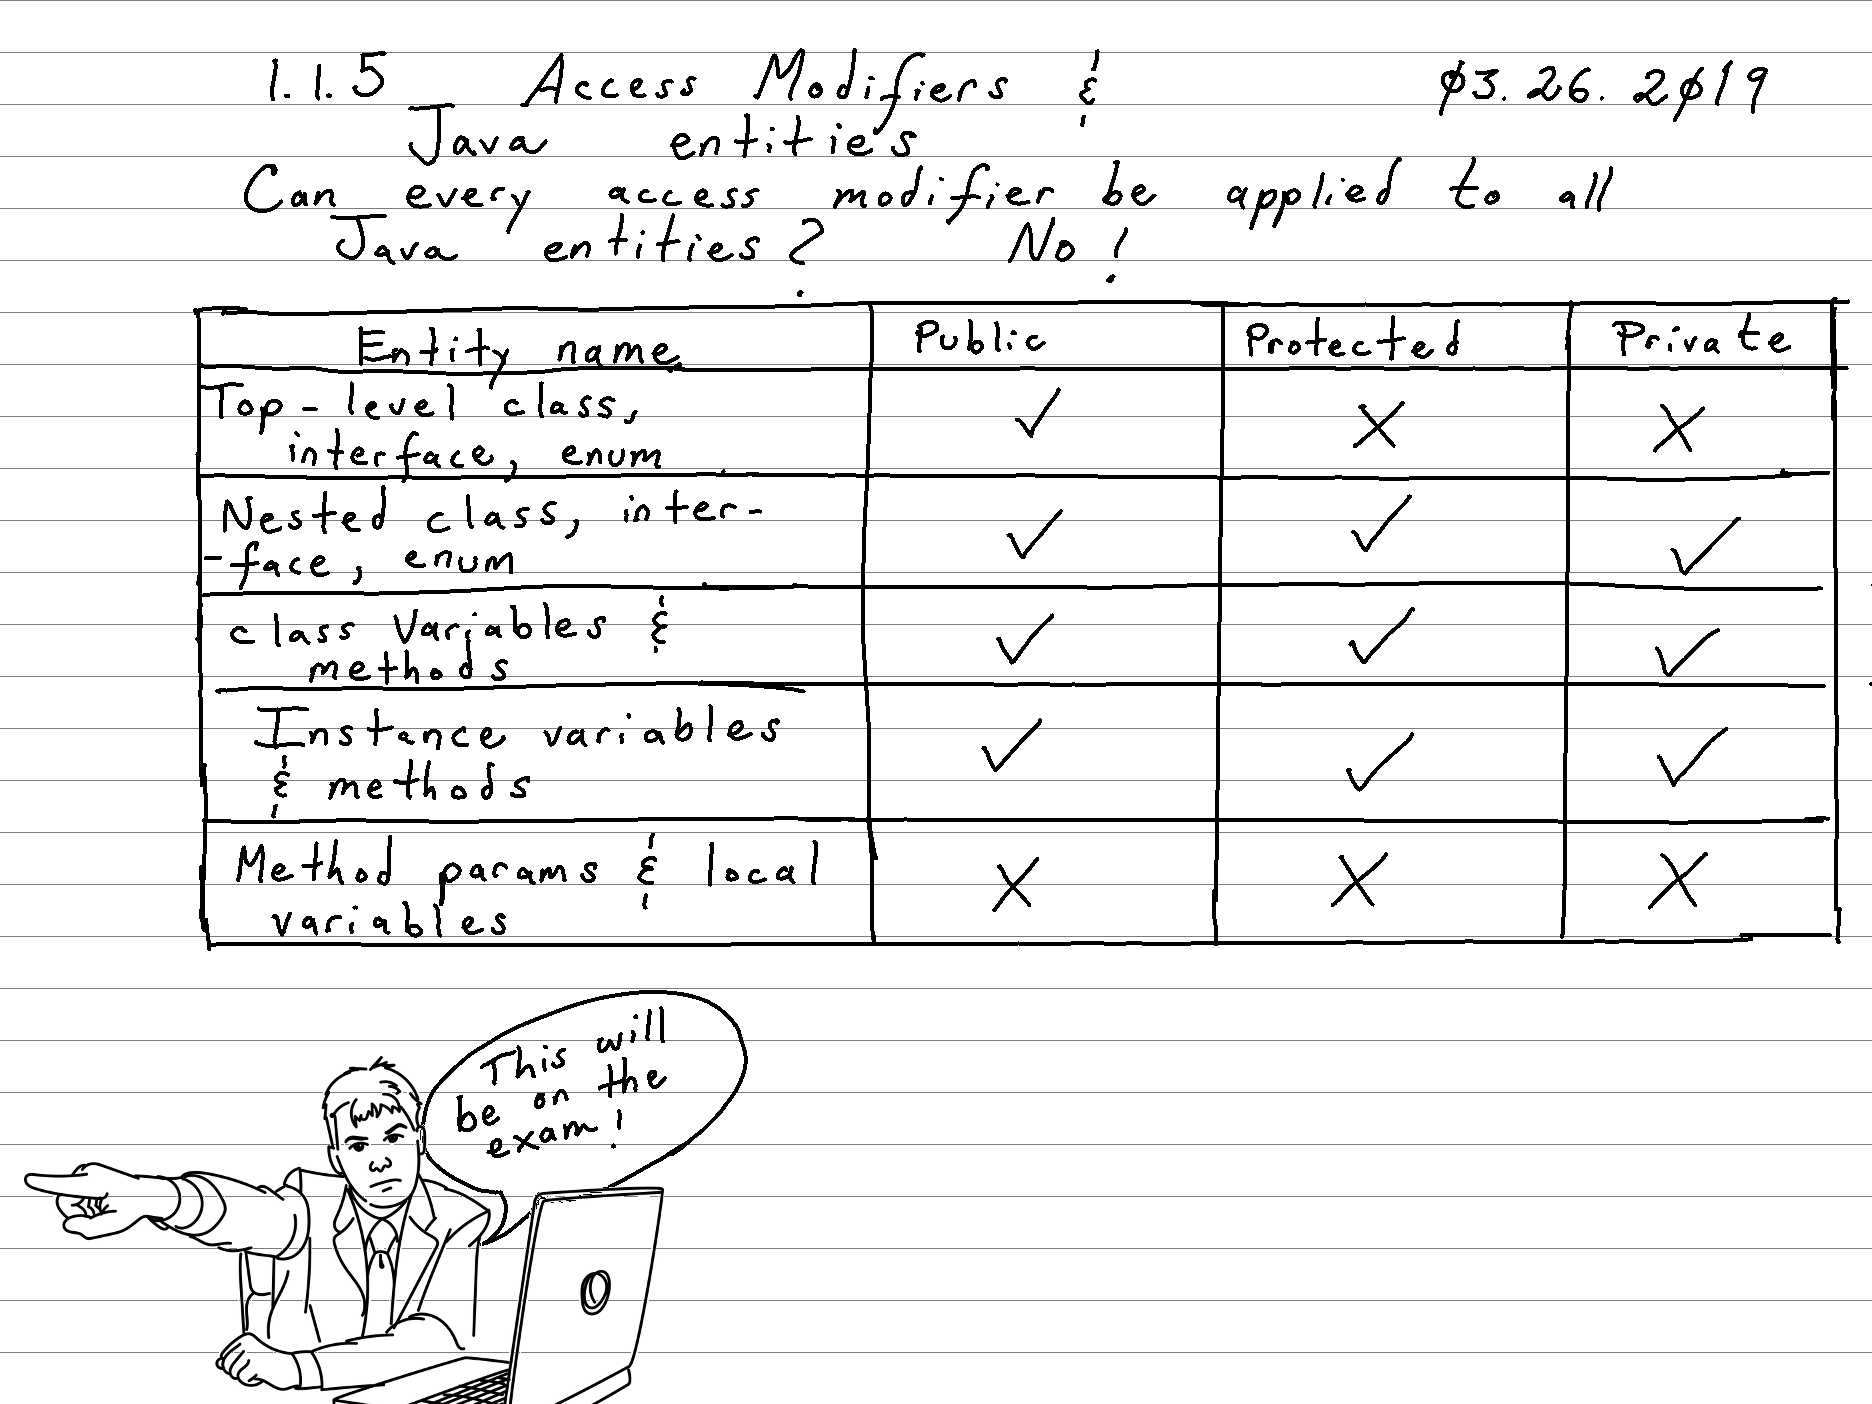 1.1.5 Access Modifiers & 03.26.2019
Java entities
Can every access modifier be applied to all
Java entities? No!
Entity name Public Protected Private
Top-level class, ✓ ✗ ✗
interface, enum
Nested class, inter- ✓ ✓ ✓
-face, enum
class Variables & ✓ ✓ ✓
methods
Instance variables ✓ ✓ ✓
& methods
Method params & local ✗ ✗ ✗
variables
This will
be on the
exam!